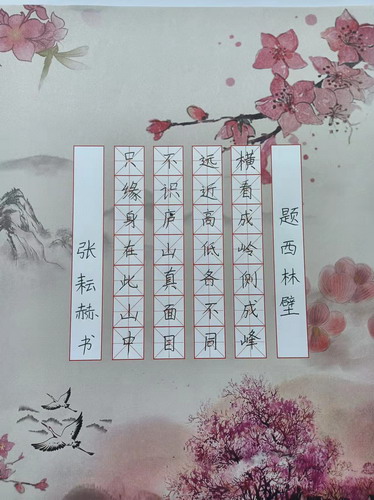 题西林壁
横看成岭侧成峰
远近高低各不同
不识庐山真面目
只缘身在此山中
张耘赫书